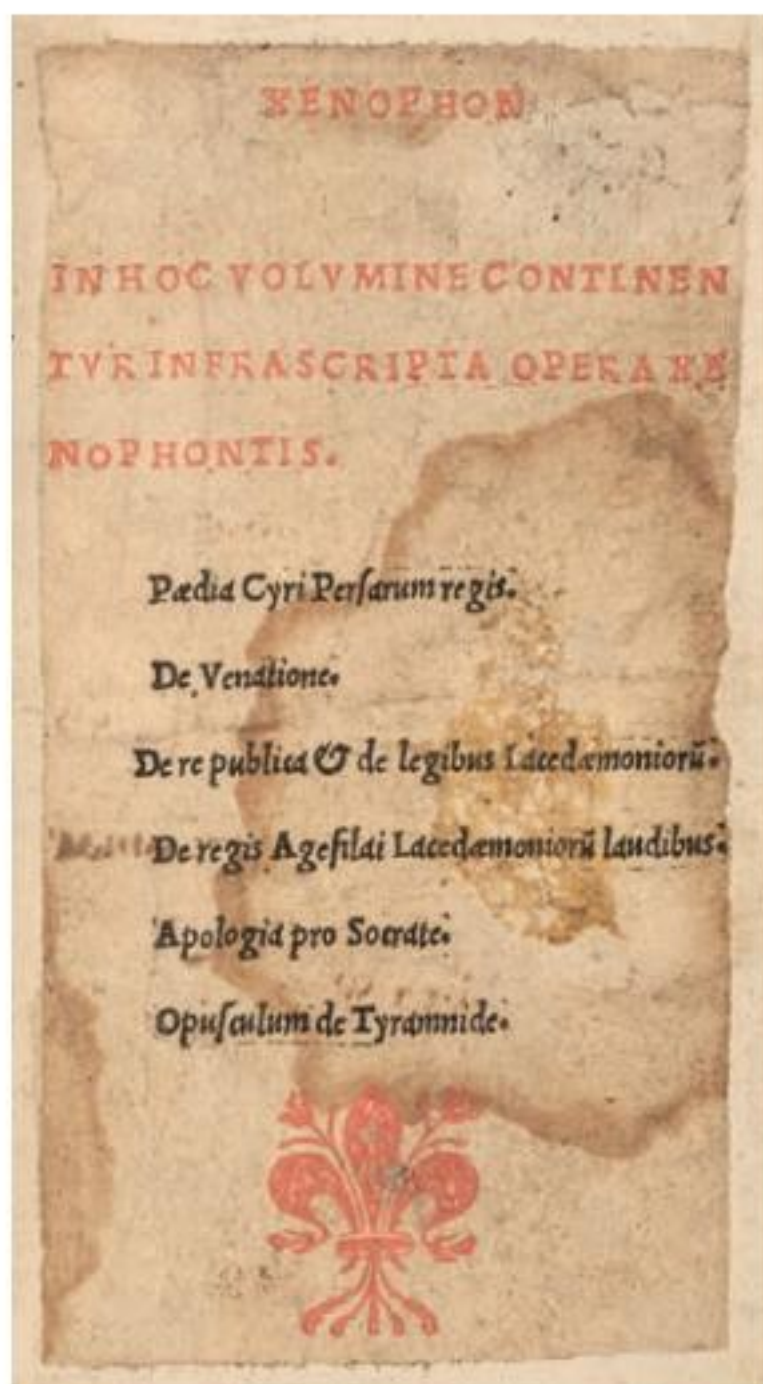 XENOPHON
IN HOC VOLVMINE CONTINEN
TVR INFRASCRIPTA OPERA XE
NOPHONTIS.
Pædia Cyri Perſarum regis.
De Venatione.
De re publica & de legibus Lacedæmoniorũ.
De regis Ageſilai Lacedæmoniorũ laudibus.
Apologia pro Socrate.
Opuſculum de Tyrannide.